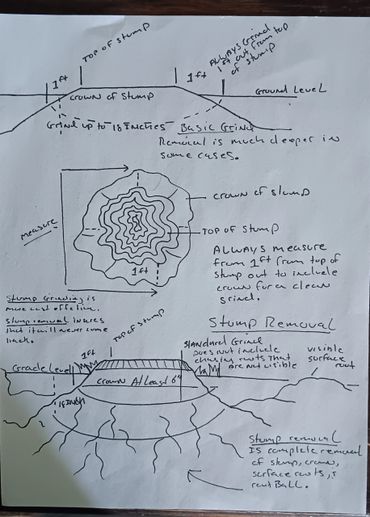 TOP of stump
ALWAYS Grind
1 ft out from top
of stump
1 ft
1 ft
crown of stump
Ground Level
Grind up to 18 Inches
Basic Grind
Removal is much deeper in
some cases.
crown of stump
measure
TOP of stump
1 ft
ALWAYS measure
from 1ft from top of
stump out to include
crown for a clean
grind.
Stump Grinding is
more cost effective.
Stump removal insures
that it will never come
back.
Stump Removal
Top of stump
1 ft
Standard Grind
Does not include
chasing roots that
are not visible
visible
surface
root
Grade Level
crown At Least 6"
Stump removal
Is complete removal
of stump, crown,
surface roots,
root Ball.